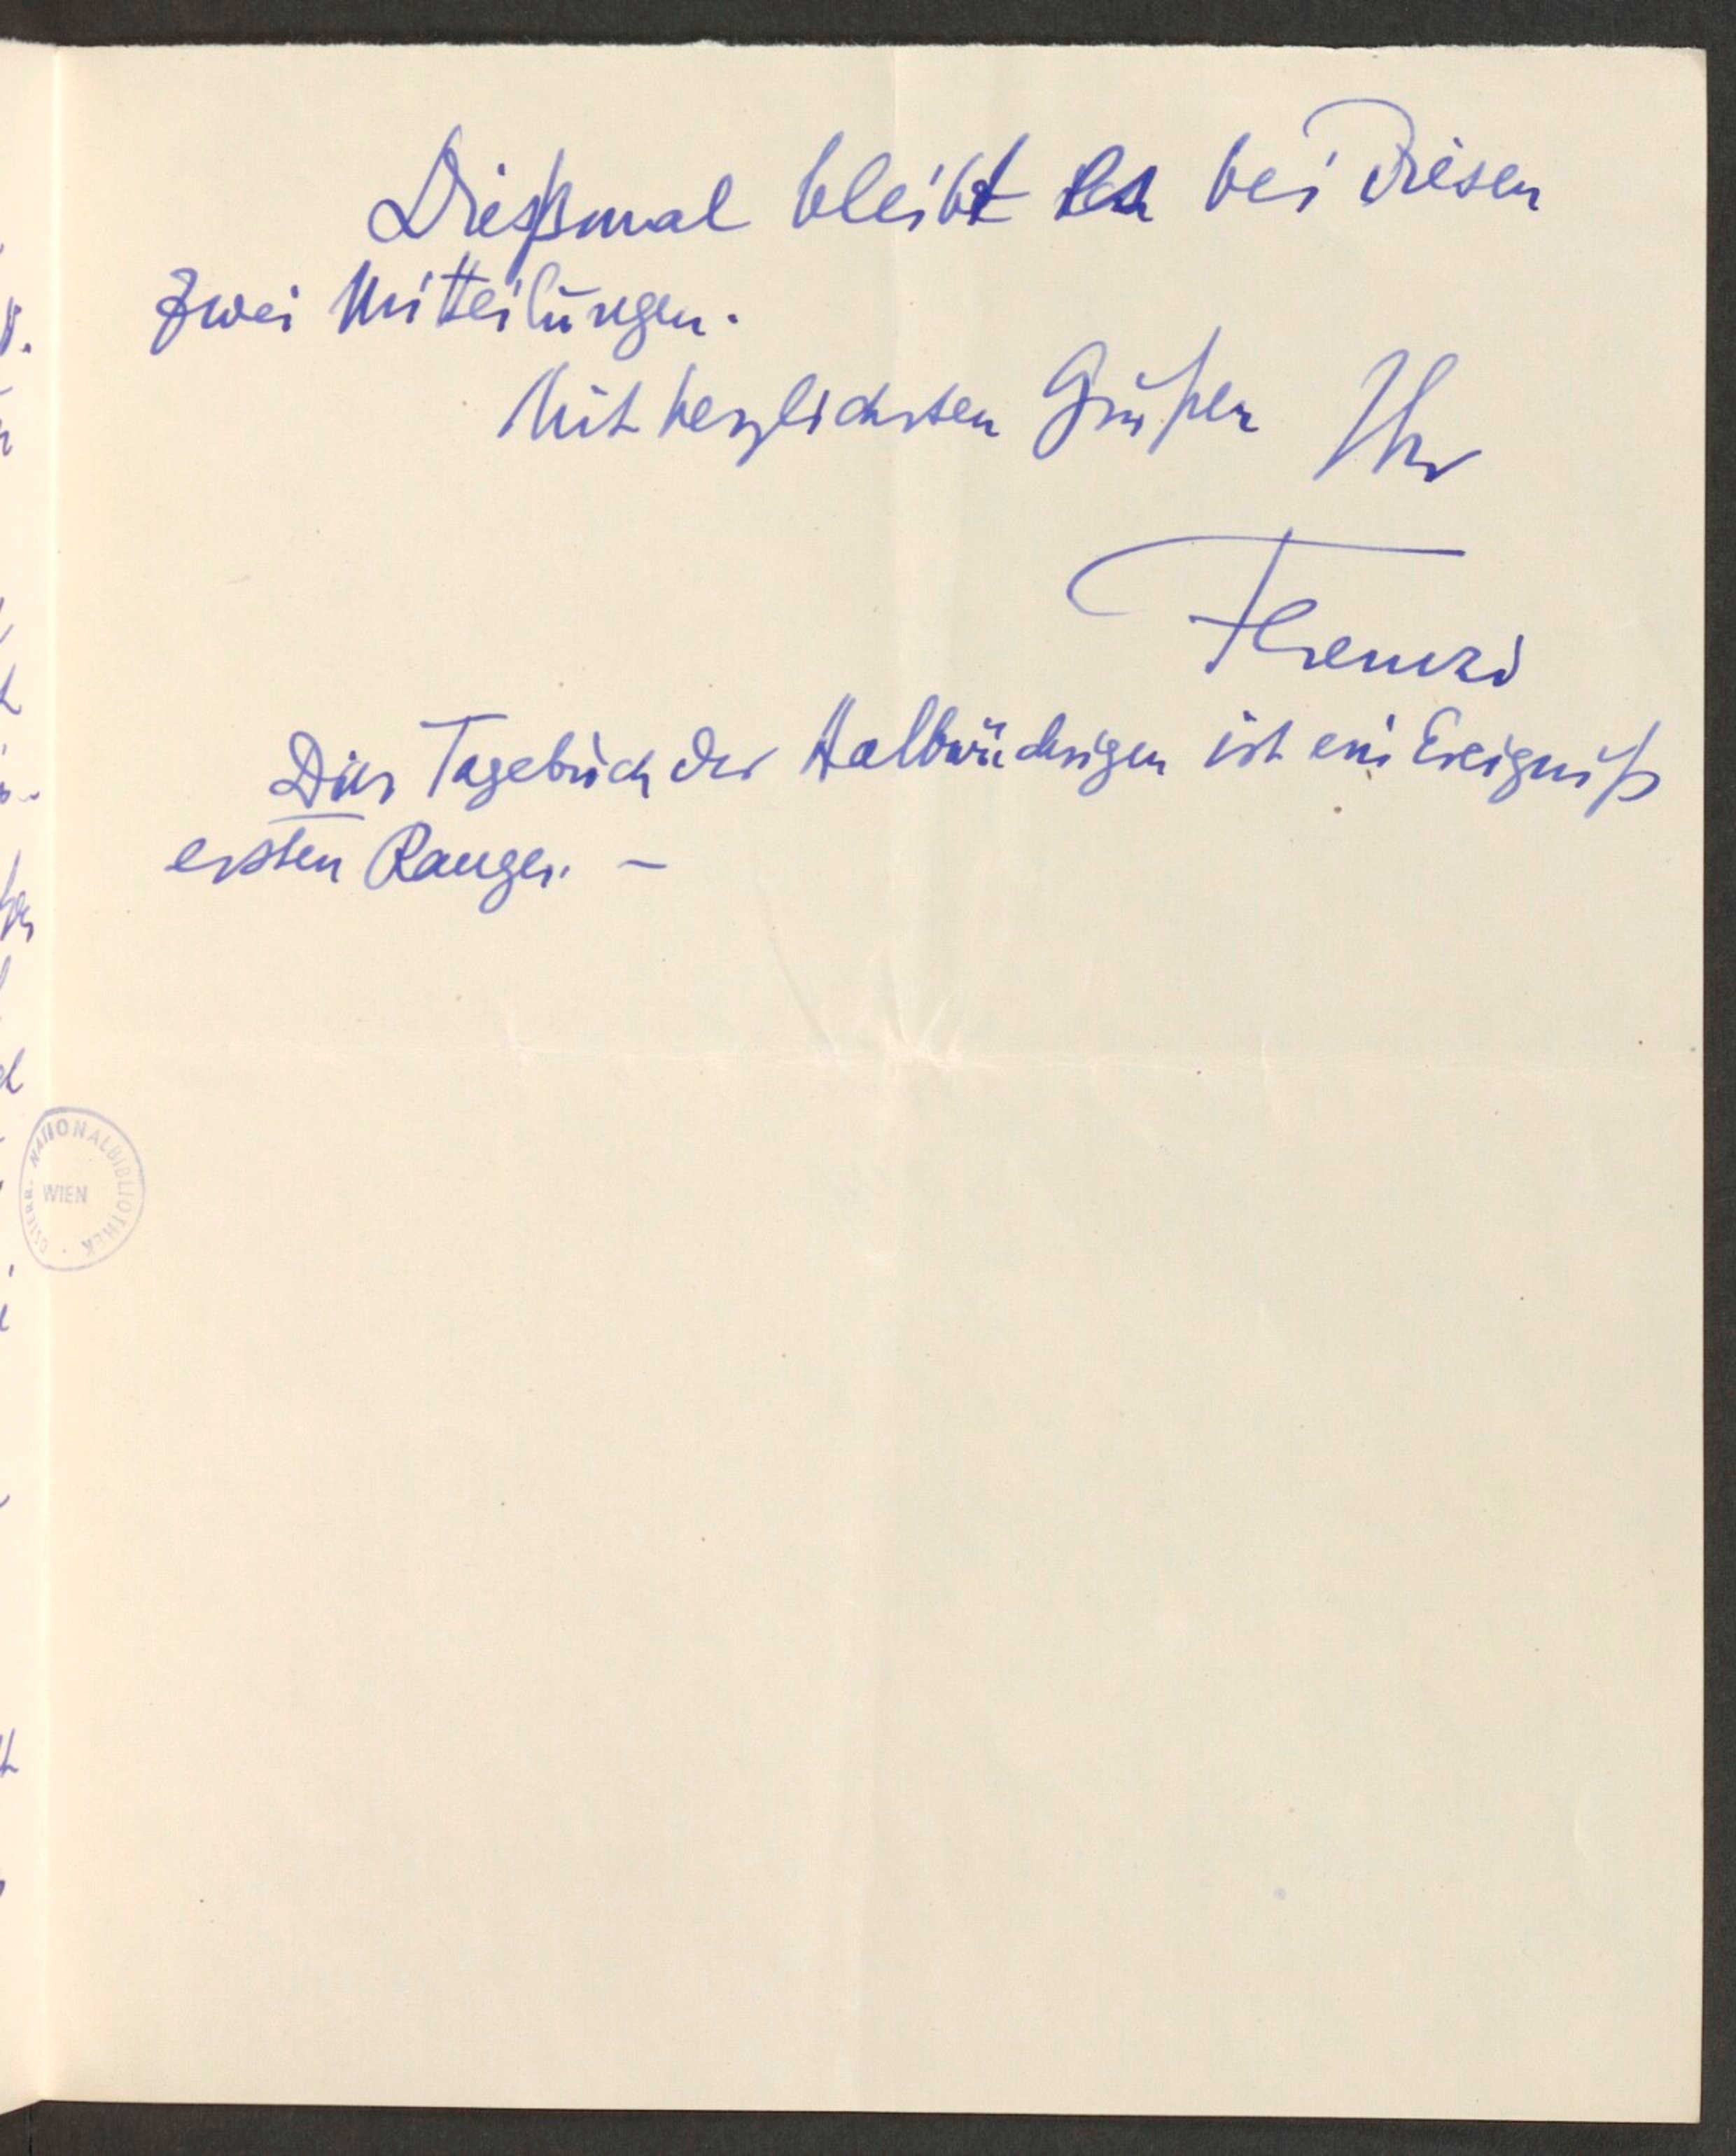 Dießmal bleibt es bei diesen
zwei Mitteilungen.
Mit herzlichsten Grüßen Ihr
Ferenczi
Das Tagebuch der Halbwüchsigen ist ein Ereigniß
ersten Ranges. –
ÖSTERR. NATIONALBIBLIOTHEK
WIEN